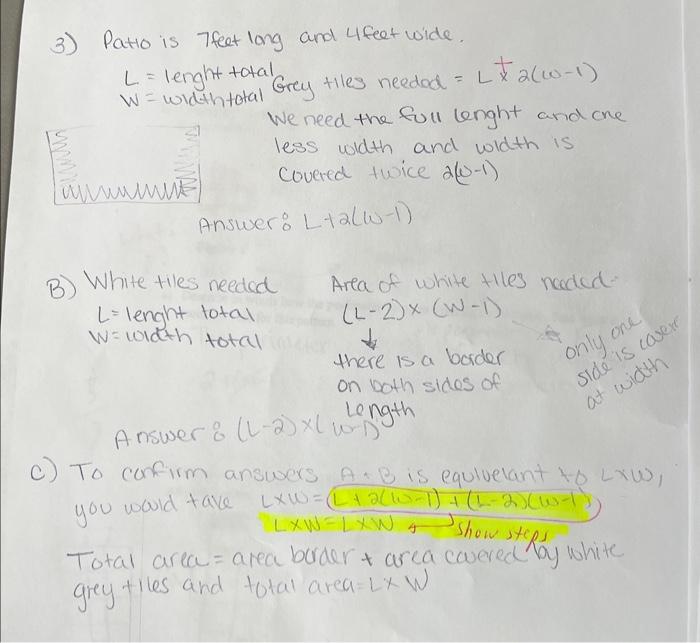 3) Patio is 7feet long and 4feet wide.
L = lenght total
W = width total
Grey tiles needed = L + 2(w-1)
We need the full lenght and one
less width and width is
covered twice 2(w-1)
Answer: L+2(w-1)
B) White tiles needed
L= lenght total
W= width total
Area of white tiles needed-
(L-2) x (W-1)
↓
there is a border
on both sides of
Length
only one
side is cover
at width
Answer: (L-2)x(w-1)
C) To confirm answers A+B is equivelant to LxW,
you would take LxW = (L+2(w-1)+(L-2)(w-1)
LxW=LxW
show steps
Total area = area border + area covered by white
grey tiles and total area=LxW